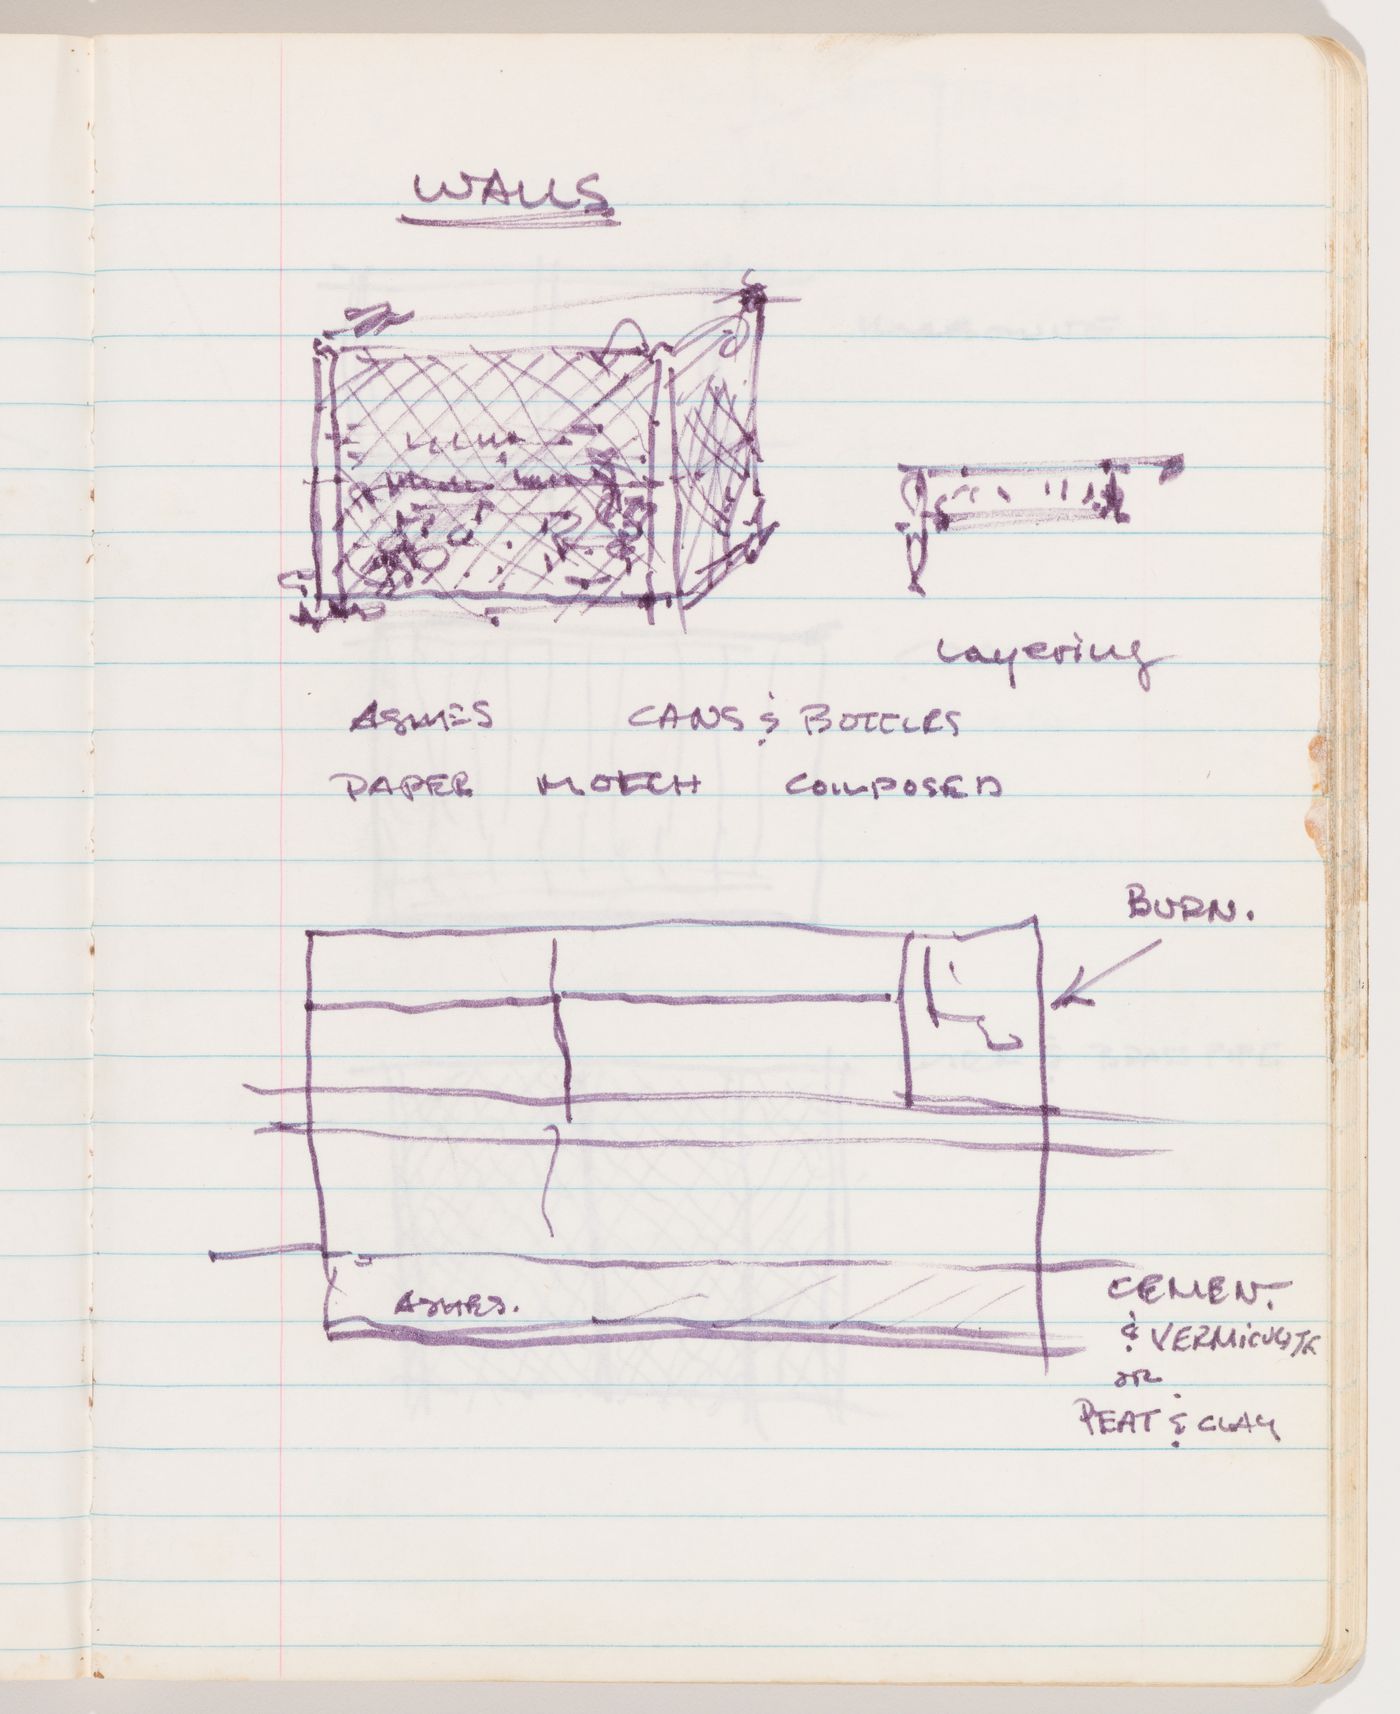 WALLS
Layering
ASHES CANS & BOTTLES
PAPER MULCH COMPOSED
BURN.
ASHES.
CEMENT
& VERMICULITE
OR
PEAT & CLAY